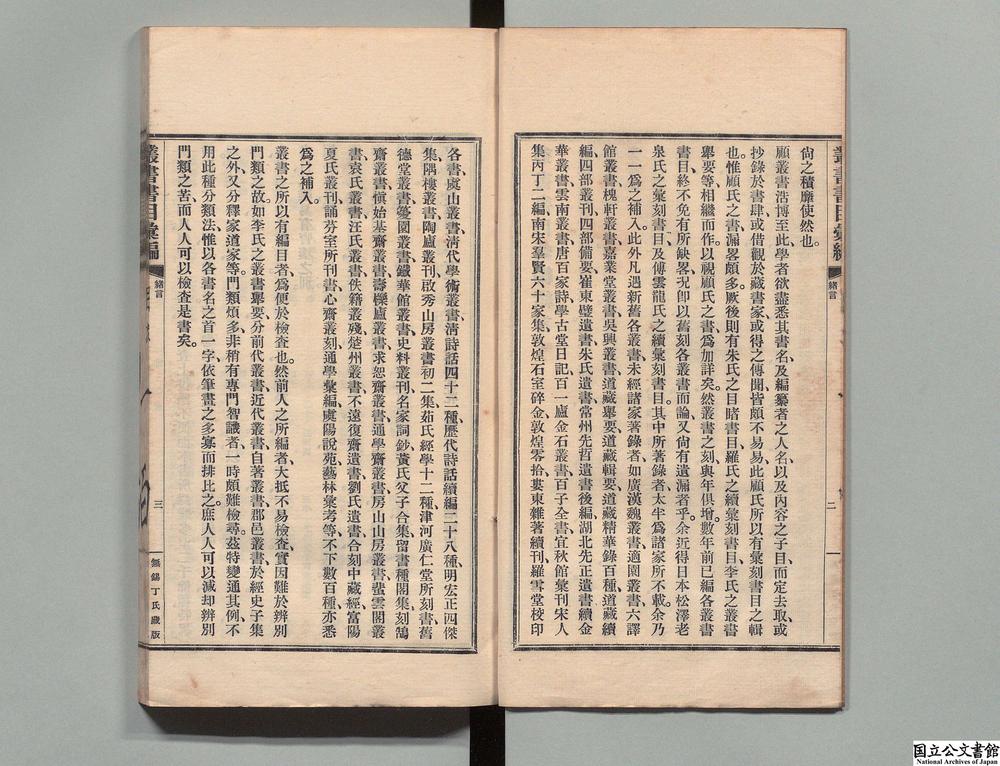 叢書書目彙編
緒言
二
尙之積靡使然也。
顧叢書浩博至此、學者欲盡悉其書名、及編纂者之人名、以及內容之子目、而定去取、或
抄錄於書肆、或借觀於藏書家、或得之傳聞、皆頗不易易、此顧氏所以有彙刻書目之輯
也、惟顧氏之書、漏畧頗多、厥後則有朱氏之目睹書目、羅氏之續彙刻書目、李氏之叢書
舉要等、相繼而作、以視顧氏之書、爲加詳矣。然叢書之刻、與年俱增、數年前已編各叢書
書目、終不免有所缺畧、況卽以舊刻各叢書而論、又尙有遺漏者乎、余近得日本松澤老
泉氏之彙刻書目、及傅雲龍氏之續彙刻書目、其中所著錄者、太半爲諸家所不載、余乃
一一爲之補入、此外凡遇新舊各叢書、未經諸家著錄者、如廣漢魏叢書、適園叢書、六譯
館叢書、槐軒叢書、嘉業堂叢書、吳興叢書、道藏舉要、道藏輯要、道藏精華錄百種、道藏續
編、四部叢刊、四部備要、崔東壁遺書、朱氏遺書、常州先哲遺書後編、湖北先正遺書、續金
華叢書、雲南叢書、唐百家詩、學古堂日記、百一廬金石叢書、百子全書、宜秋館彙刊宋人
集丙丁二編、南宋羣賢六十家集、敦煌石室碎金、敦煌零拾、婁東雜著續刊、羅雪堂校印
各書、虞山叢書、清代學術叢書、清詩話四十二種、歷代詩話續編二十八種、明宏正四傑
集、隅樓叢書、陶廬叢刊、啟秀山房叢書初二集、茹氏經學十二種、津河廣仁堂所刻書、舊
德堂叢書、蔓園叢書、鐵華館叢書、史料叢刊、名家詞鈔、黃氏父子合集、留書種閣集、刻鵠
齋叢書、愼始基齋叢書、壽櫟廬叢書、求恕齋叢書、通學齋叢書、房山山房叢書、蟄雲閣叢
書、袁氏叢書、汪氏叢書、佚籍叢殘、楚州叢書、不遠復齋遺書、劉氏遺書合刻、中藏經、富陽
夏氏叢刊、誦芬室所刊書、心齋叢刻、通學彙編、虞陽說苑、藝林彙考等、不下數百種、亦悉
爲之補入。
叢書之所以有編目者、爲便於檢查也、然前人之所編者、大抵不易檢查、實因難於辨別
門類之故。如李氏之叢書舉要、分前代叢書、近代叢書、自著叢書、郡邑叢書、於經史子集
之外、又分釋家道家等。門類煩多、非稍有專門智識者、一時頗難檢尋。茲特變通其例、不
用此種分類法、惟以各書名之首一字、依筆畫之多寡而排比之。庶人人可以減却辨別
門類之苦、而人人可以檢查是書矣。
叢書書目彙編
緒言
三
無錫丁氏藏版
国立公文書館
National Archives of Japan